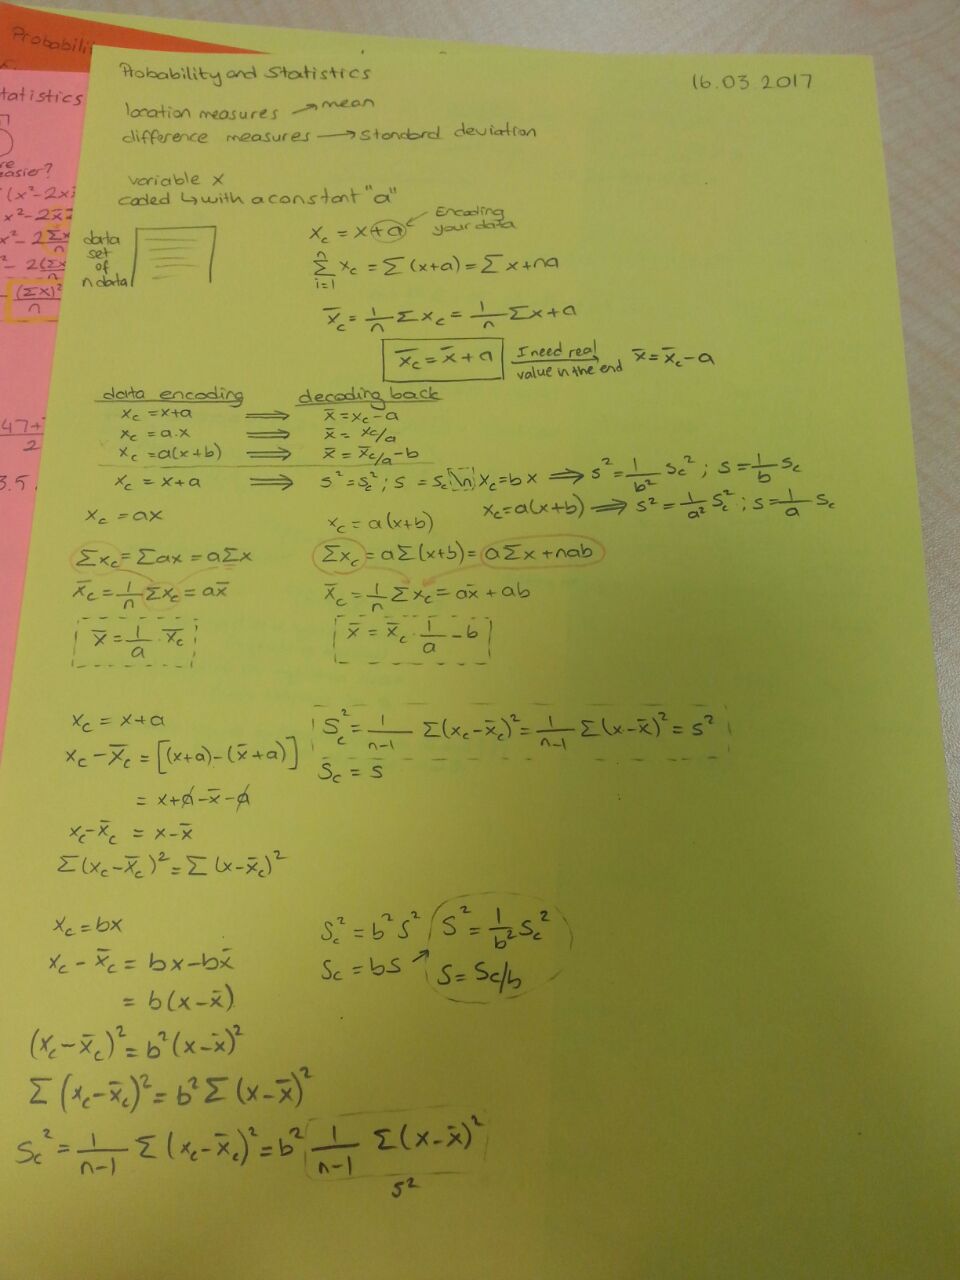 Probability and Statistics
16.03.2017
location measures → mean
difference measures → standard deviation
variable x
coded ↳ with a constant "a"
data set of n data
x_c = x+a ← Encoding your data
n Σ i=1 x_c = Σ (x+a) = Σ x + na
x̄_c = 1/n Σ x_c = 1/n Σ x + a
x̄_c = x̄ + a I need real value in the end x̄ = x̄_c - a
data encoding decoding back
x_c = x+a ⟹ x̄ = x_c - a
x_c = a.x ⟹ x̄ = x_c/a
x_c = a(x+b) ⟹ x̄ = x̄_c/a - b
x_c = x+a ⟹ s² = s_c² ; s = s_c \n x_c = bx ⟹ s² = 1/b² s_c² ; s = 1/b s_c
x_c = a(x+b) ⟹ s² = 1/a² s_c² ; s = 1/a s_c
x_c = ax
Σx_c = Σax = aΣx
x̄_c = 1/n Σx_c = ax̄
x̄ = 1/a · x̄_c
x_c = a(x+b)
Σx_c = aΣ(x+b) = aΣx + nab
x̄_c = 1/n Σ x_c = ax̄ + ab
x̄ = x̄_c · 1/a - b
x_c = x+a
x_c - x̄_c = [(x+a) - (x̄+a)]
= x + a - x̄ - a
x_c - x̄_c = x - x̄
Σ(x_c - x̄_c)² = Σ (x - x̄_c)²
S_c² = 1/n-1 Σ(x_c - x̄_c)² = 1/n-1 Σ(x - x̄)² = s²
S_c = s
x_c = bx
x_c - x̄_c = bx - bx̄
= b(x - x̄)
(x_c - x̄_c)² = b²(x - x̄)²
Σ (x_c - x̄_c)² = b² Σ (x - x̄)²
S_c² = 1/n-1 Σ (x_c - x̄_c)² = b² 1/n-1 Σ(x - x̄)²
s²
S_c² = b² S²
S_c = bS
S² = 1/b² S_c²
S = S_c/b
Probabili
tatistics
easier?
(x² - 2x
x² - 2x̄
x² - 2 Σx/n
- 2(Σx/n
(Σx)²/n
47+
2
3.5.